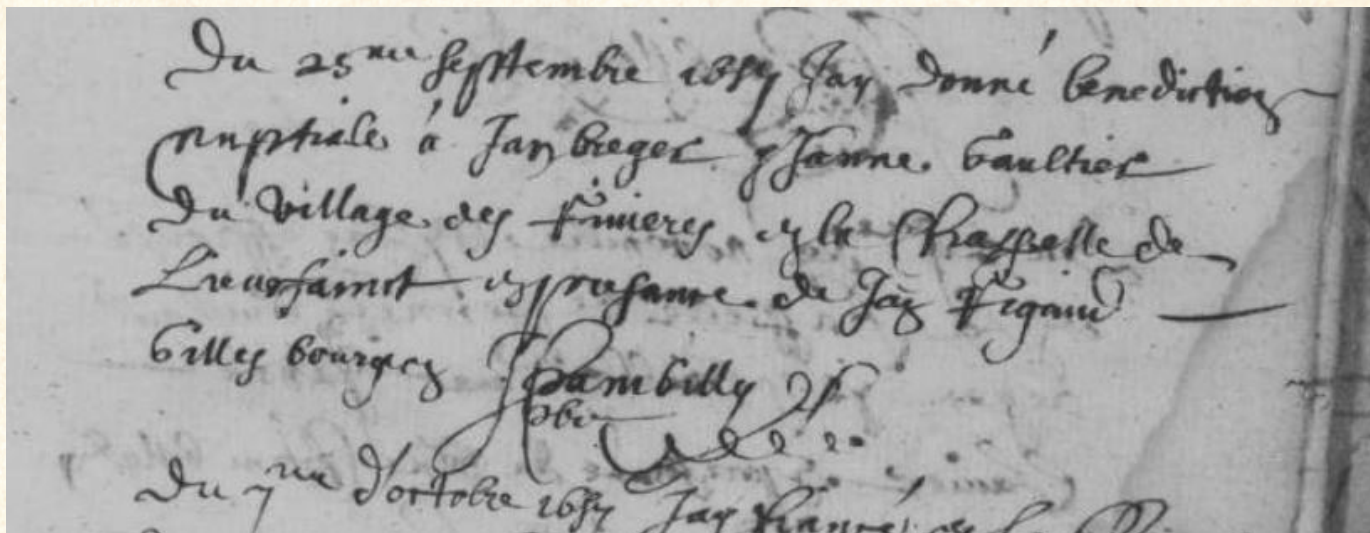 Du 25me septembre 1657 Jay donné benediction
nuptiale à Jan breger & Janne Gaultier
du village des en la Chappelle de
Lieursainct en presance de Jan Rigaud
Gilles bourges J Pambilly
pbr
Du 7me d'octobre 1657 Jay fiancé